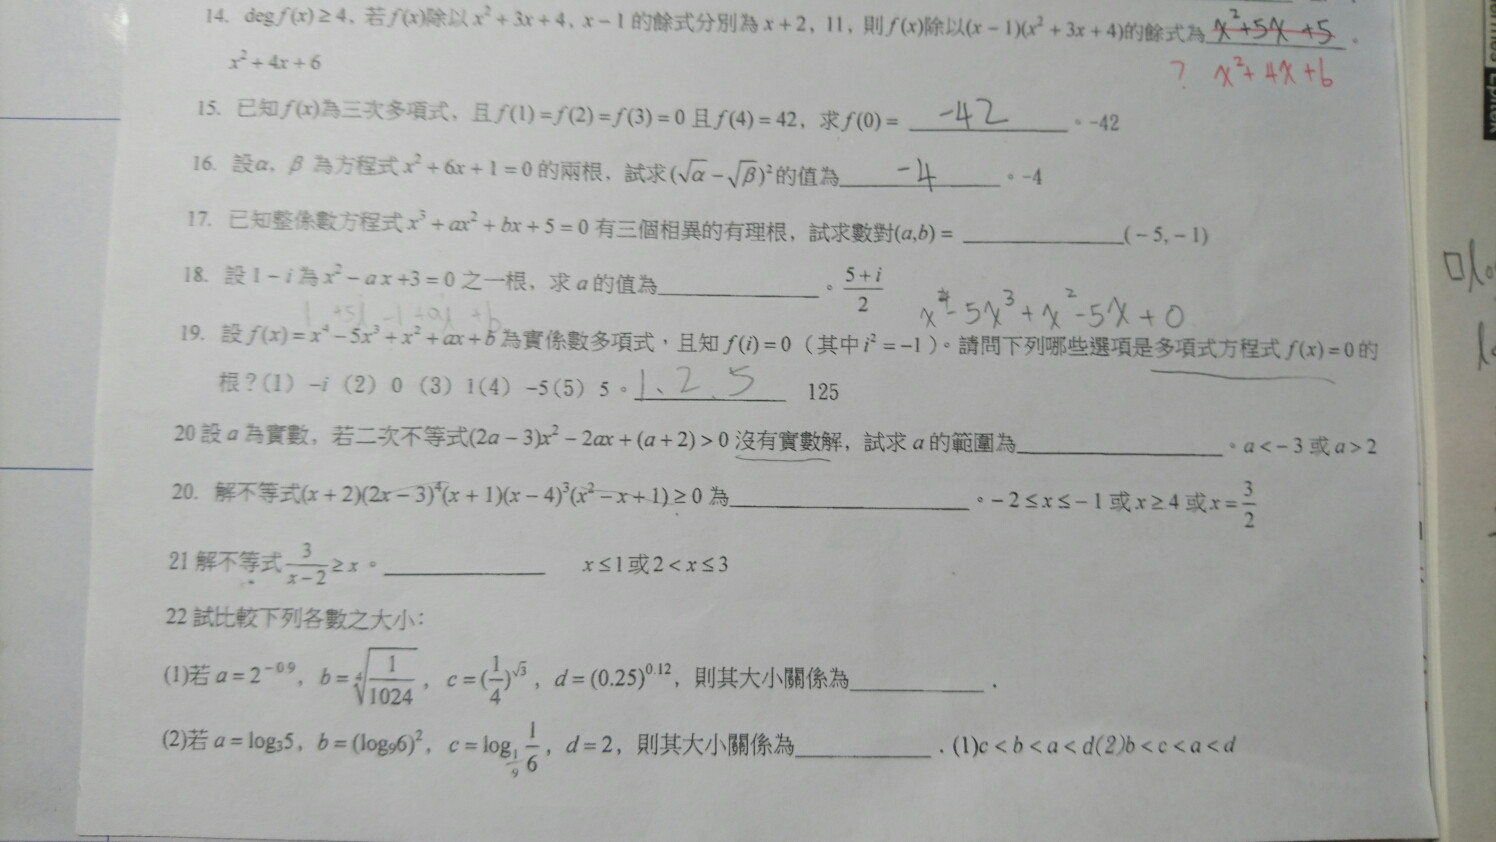 14. deg f(x) ≥ 4，若 f(x)除以 x² + 3x + 4，x − 1 的餘式分別為 x + 2，11，則 f(x)除以(x − 1)(x² + 3x + 4)的餘式為 x²+5x+5 。
x² + 4x + 6
? x²+4x+6
15. 已知 f(x)為三次多項式，且 f(1) = f(2) = f(3) = 0 且 f(4) = 42，求 f(0) = -42 。−42
16. 設α，β 為方程式 x² + 6x + 1 = 0 的兩根，試求(√α − √β)²的值為 -4 。−4
17. 已知整係數方程式 x³ + ax² + bx + 5 = 0 有三個相異的有理根，試求數對(a,b) = ____________(− 5, − 1)
18. 設 1 − i 為 x² − a x +3 = 0 之一根，求 a 的值為____________。 (5 + i)/2
x⁴-5x³+x²-5x+0
19. 設 f(x) = x⁴ − 5x³ + x² + ax + b 為實係數多項式，且知 f(i) = 0（其中 i² = −1）。請問下列哪些選項是多項式方程式 f(x) = 0 的
根？(1) −i (2) 0 (3) 1(4) −5(5) 5 。1、2、5 125
20 設 a 為實數，若二次不等式(2a − 3)x² − 2ax + (a + 2) > 0 沒有實數解，試求 a 的範圍為____________。a < − 3 或 a > 2
20. 解不等式(x + 2)(2x − 3)⁴(x + 1)(x − 4)³(x² − x + 1) ≥ 0 為____________。− 2 ≤ x ≤ − 1 或 x ≥ 4 或 x = 3/2
21 解不等式 3/(x − 2) ≥ x 。____________ x ≤ 1 或 2 < x ≤ 3
22 試比較下列各數之大小：
(1)若 a = 2^(−0.9)，b = ⁴√(1/1024)，c = (1/4)^√3，d = (0.25)^0.12，則其大小關係為__________．
(2)若 a = log₃5，b = (log₉6)²，c = log_(1/9) 1/6，d = 2，則其大小關係為__________．(1)c < b < a < d(2)b < c < a < d